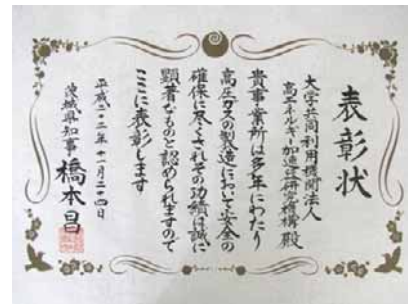 表彰状
大学共同利用機関法人
高エネルギー加速器研究機構 殿
貴事業所は多年にわたり
高圧ガスの製造において安全の
確保に尽くされその功績は誠に
顕著なものと認められますので
ここに表彰します
平成二十二年十一月二十四日
茨城県知事 橋本昌